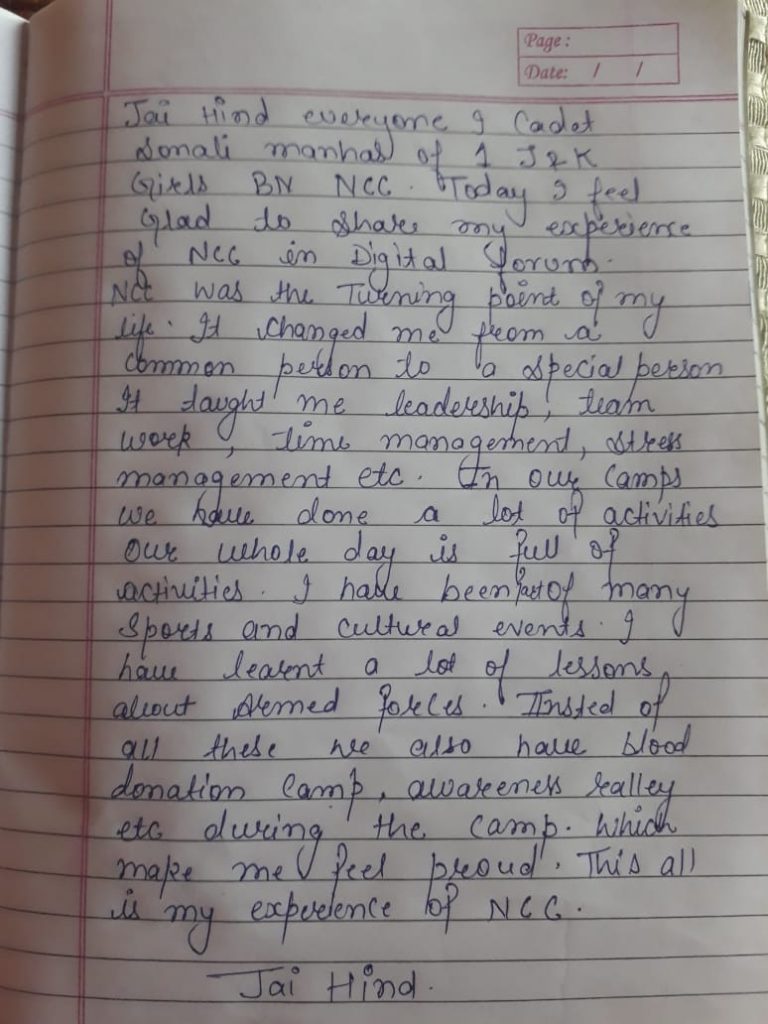 Page:
Date: / /
Jai Hind everyone I Cadet
Sonali manhas of 1 J&K
Girls BN NCC. Today I feel
Glad to share my experience
of NCC in Digital forum.
NCC was the Turning point of my
life. It changed me from a
common person to a special person
It taught me leadership, team
work, time management, stress
management etc. In our camps
we have done a lot of activities
our whole day is full of
activities. I have been part of many
sports and cultural events. I
have learnt a lot of lessons
about Armed forces. Insted of
all these we also have blood
donation camp, awareness ralley
etc during the camp. which
make me feel proud. This all
is my experience of NCC.
Jai Hind.